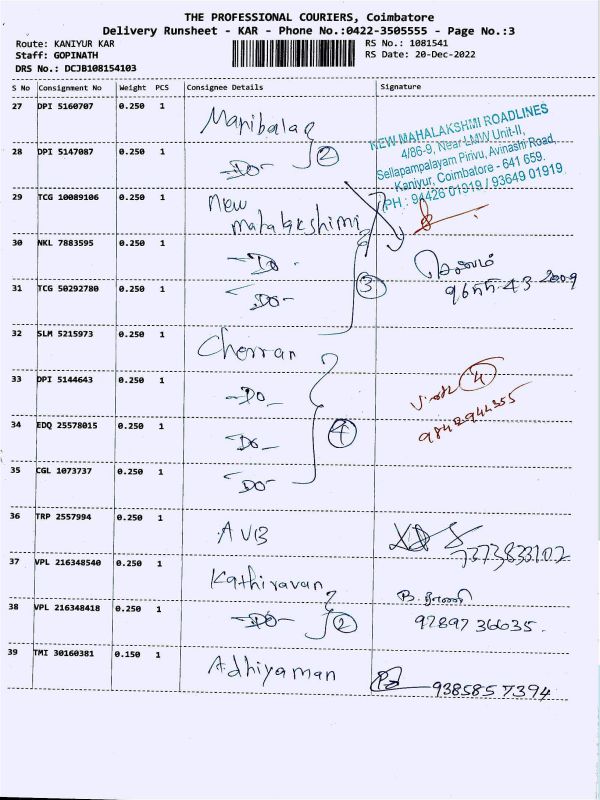 THE PROFESSIONAL COURIERS, Coimbatore
Delivery Runsheet - KAR - Phone No.:0422-3505555 - Page No.:3
Route: KANIYUR KAR
RS No.: 1081541
Staff: GOPINATH
RS Date: 20-Dec-2022
DRS No.: DCJB108154103
S No Consignment No Weight PCS Consignee Details Signature
27 DPI 5160707 0.250 1 Manibalaa
NEW MAHALAKSHMI ROADLINES
4/86-9, Near LMW Unit-II,
Sellapampalayam Pirivu, Avinashi Road,
Kaniyur, Coimbatore - 641 659.
PH : 94426 01919 / 93649 01919
28 DPI 5147087 0.250 1 -DO- 2
29 TCG 10089106 0.250 1 New Mahalakshimi
30 NKL 7883595 0.250 1 -Do-
31 TCG 50292780 0.250 1 -Do- 3
32 SLM 5215973 0.250 1 Cherran
33 DPI 5144643 0.250 1 -Do- 4
34 EDQ 25578015 0.250 1 -Do- 4
35 CGL 1073737 0.250 1 -Do-
36 TRP 2557994 0.250 1 AVB 7373833102
37 VPL 216348540 0.250 1 Kathiravan
38 VPL 216348418 0.250 1 -Do- 2 92897 36635.
39 TMI 30160381 0.150 1 Adhiyaman 9385857394